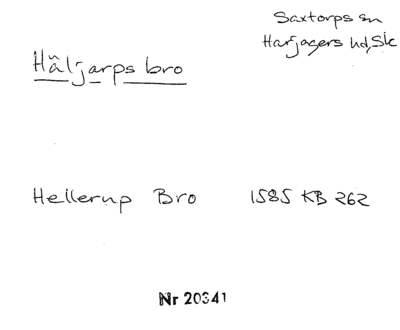 Saxtorps sn
Harjagers hd, Sk
Häljarps bro
Hellerup Bro 1585 KB 262
Nr 20341